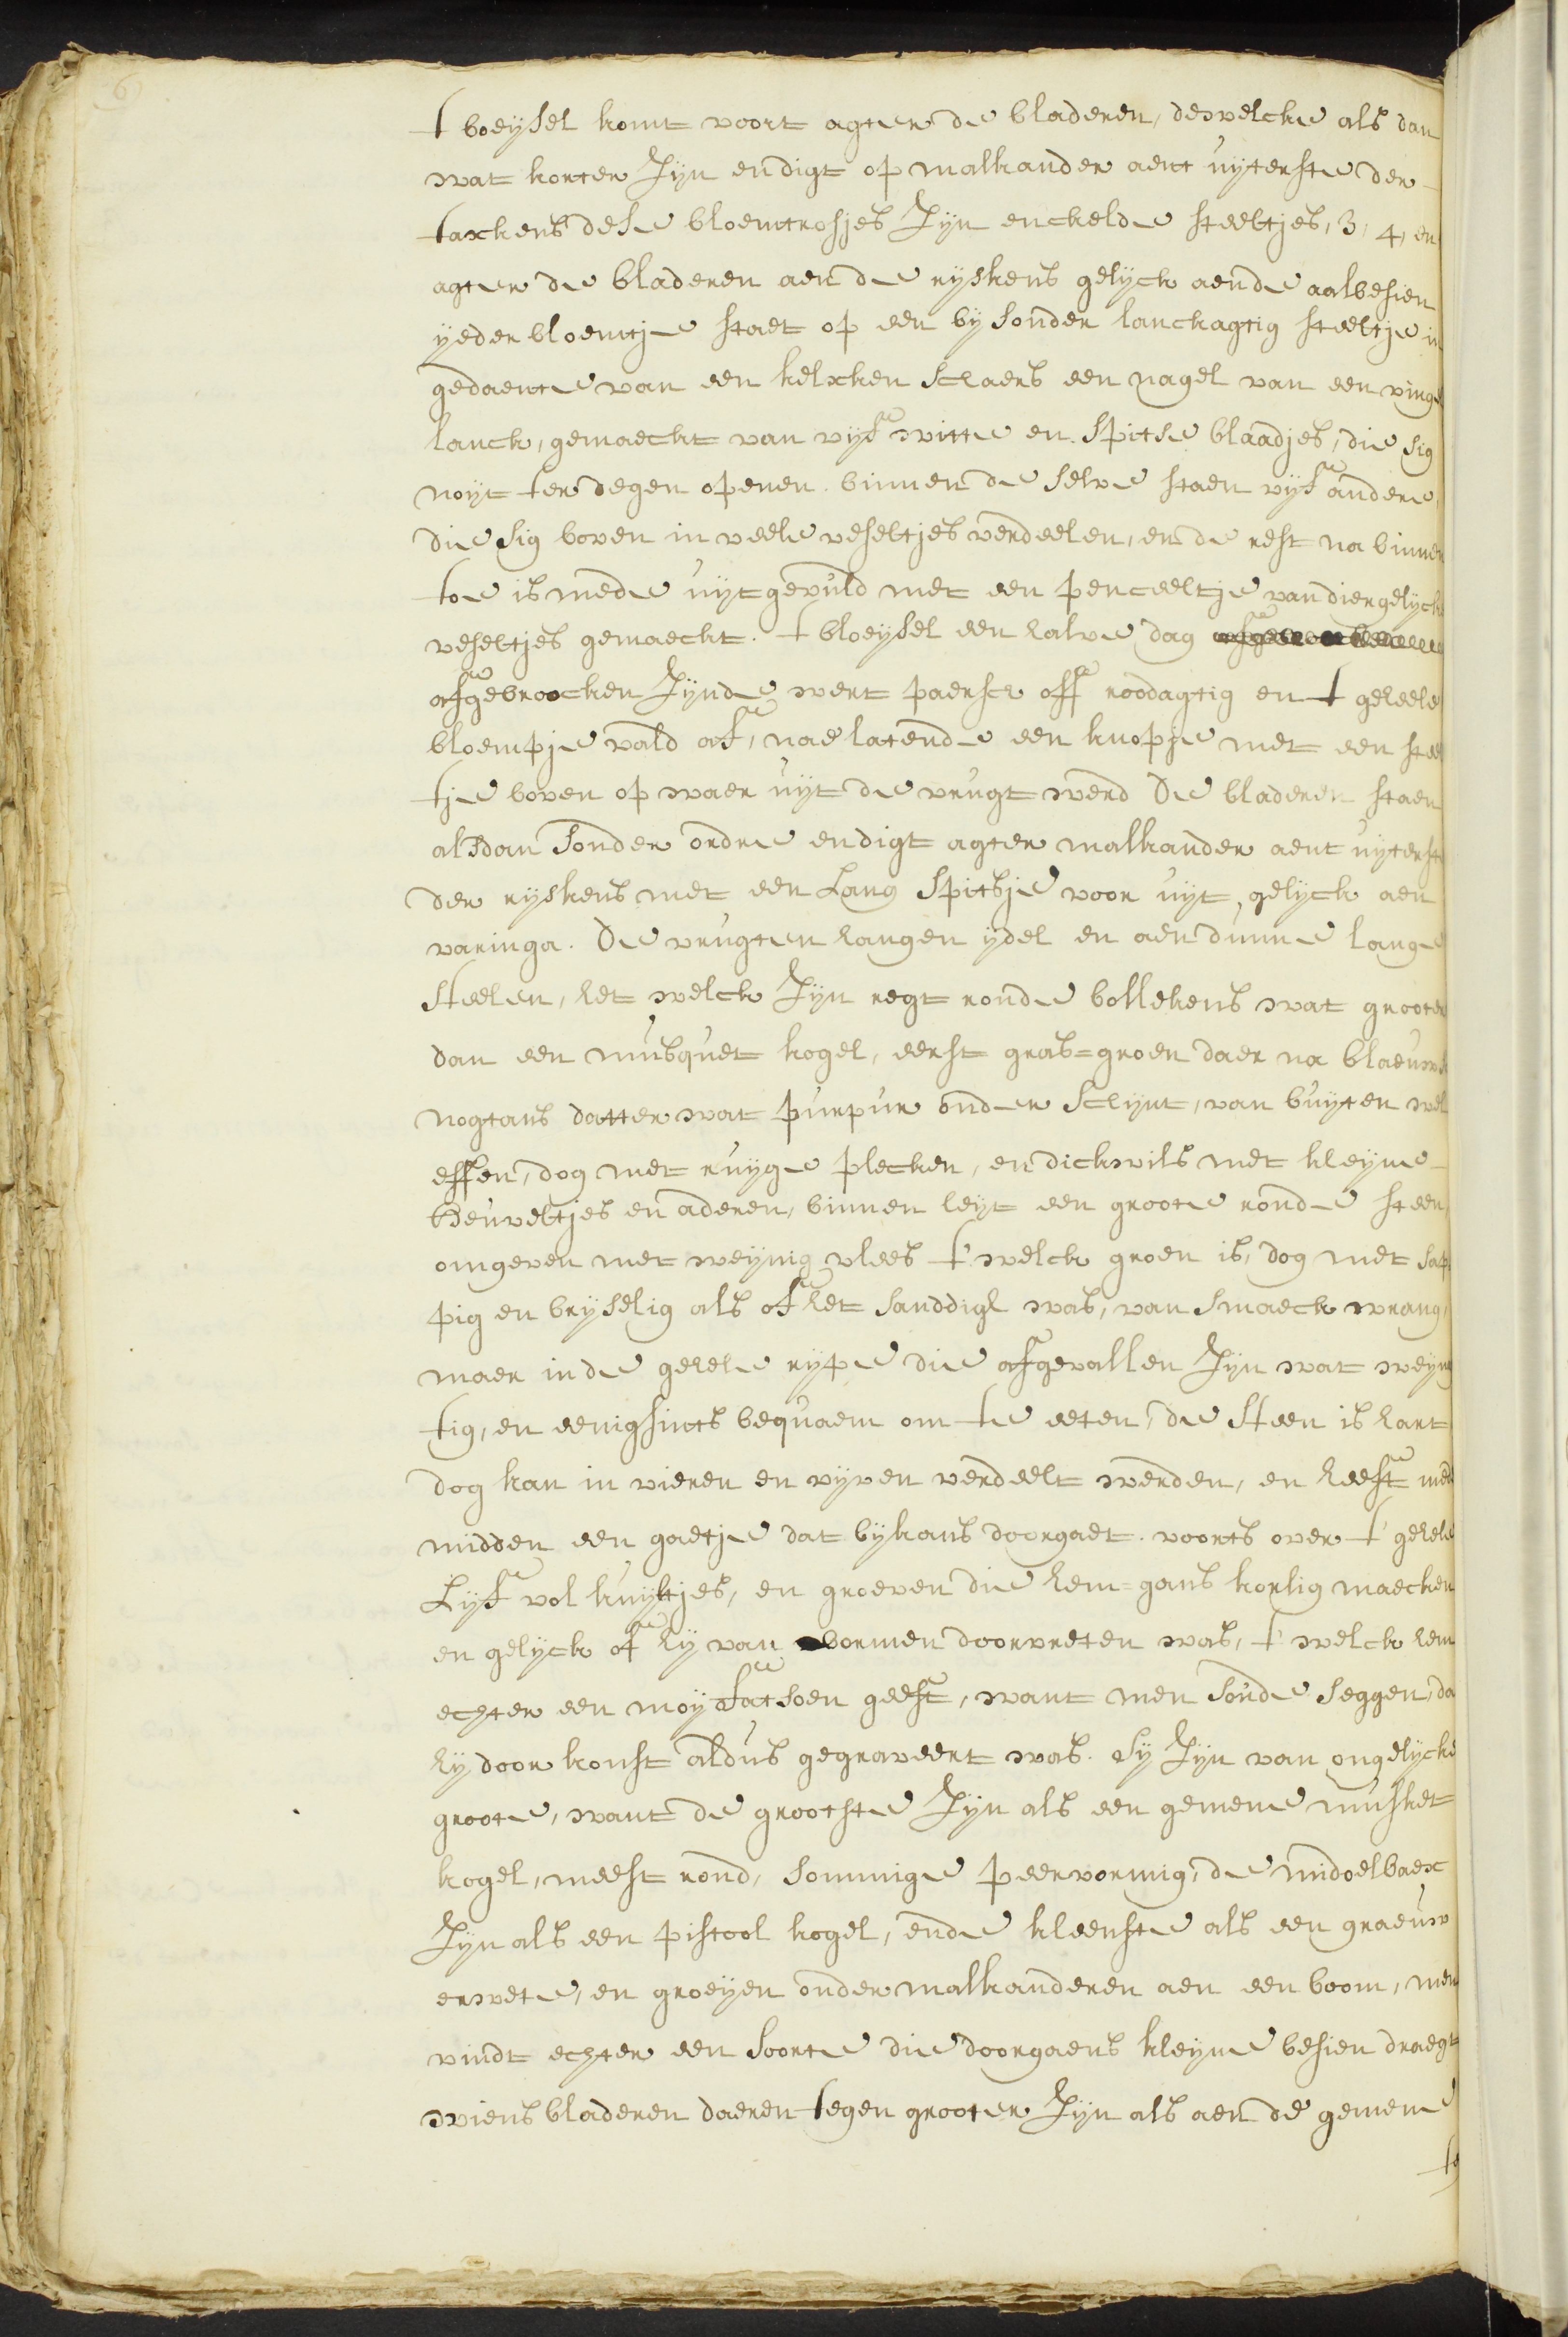 6
t boeijsel komt voort agter de bladeren, dewelcke als dan
wat korter zijn en digt op malkander aent uijterste der
taxkens dese bloemtrosjes zijn enckelde steeltjes, 3, 4, en
agter de bladeren aen de ryskens gelijck aende aalbesien
ijeder bloemtje staet op een bijsonder lanckagtig steeltje in
gedaente van een kelxken schaers een nagel van een vinge
lanck, gemaeckt van vijf witte en spitse blaadjes, die sig
noijt ter degen openen. binnen de selve staen vijf andere
die sig boven in veele veseltjes verdeelen, en de rest na binnen
toe is mede uijtgevuld met een penceeltje van diergelijck
veseltjes gemaeckt. t bloeijsel een halve dag
afgebroocken zijnde wert paersch off roodagtig en t geheele
bloempje vald af, nae latende een knopje met een stee
tje boven op waer uijt de vrugt werd De bladeren staen
alsdan sonder ordre en digt agter malkander aent uijterste
der ryskens met een Lang spitsje voor uijt, gelijck aen
varinga. De vrugten hangen ijdel en aen dunne lange
steelen, het welck zijn regt ronde bollekens wat grooter
dan een musquet kogel, eerst gras=groen daer na blaeuw
nogtans datter wat purpur onder schijnt, van buijten wel
effen, dog met ruijge plecken, en dickwils met kleijne
Heuveltjes en aderen, binnen leijt een groote ronde steen,
omgeven met weijnig vlees t'welck groen is, dog met sap
pig en brijselig als of het sanddigh was, van smaeck wrang,
maer in de gehele rijpe die afgevallen zijn wat weijn
tig, en eenigsints bequaem om te eeten, de steen is hart
dog kan in vieren en vijven verdeelt werden, en heeft int
midden een gaetje dat bijkans doorgaet. voorts over t' gehele
Lijf vol kuijltjes, en groeven die hem=gans korlig maecken
en gelijck of hij van wormen doorvreten was, t' welck hem
echter een moij fatsoen geeft, want men soude seggen, da
hij door konst aldus gegraveert was. Sij zijn van ongelijcke
groote, want de grootste zijn als een gemene musket
kogel, meest rond, sommige peervormig, de middelbaer
zijn als een pistool kogel, ende kleenste als een graeuw
erwete, en groeijen onder malkanderen aen een boom, men
vindt echter een soorte die doorgaens kleijne besien draegt
wiens bladeren daeren tegen grooter zijn als aen de gemene